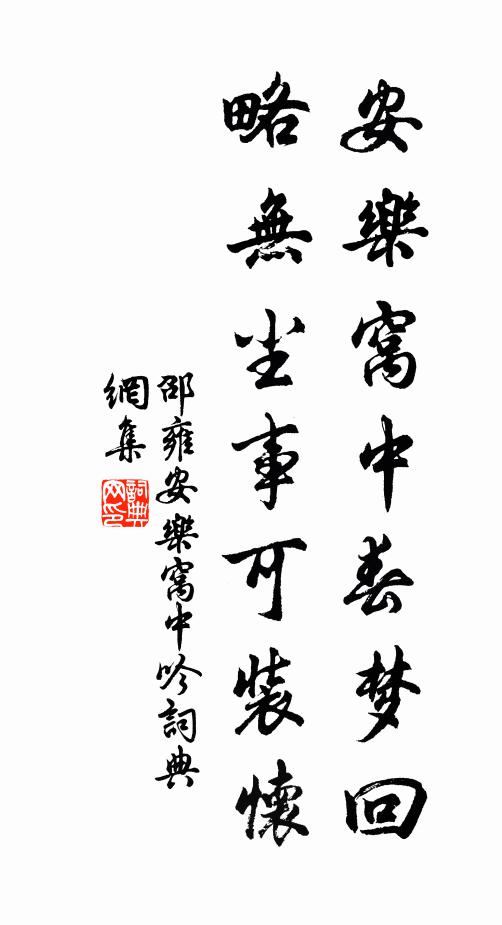 安樂窩中春梦回
略無尘事可裝懷
邵雍安樂窩中吟詞典
網集
詞典
网印